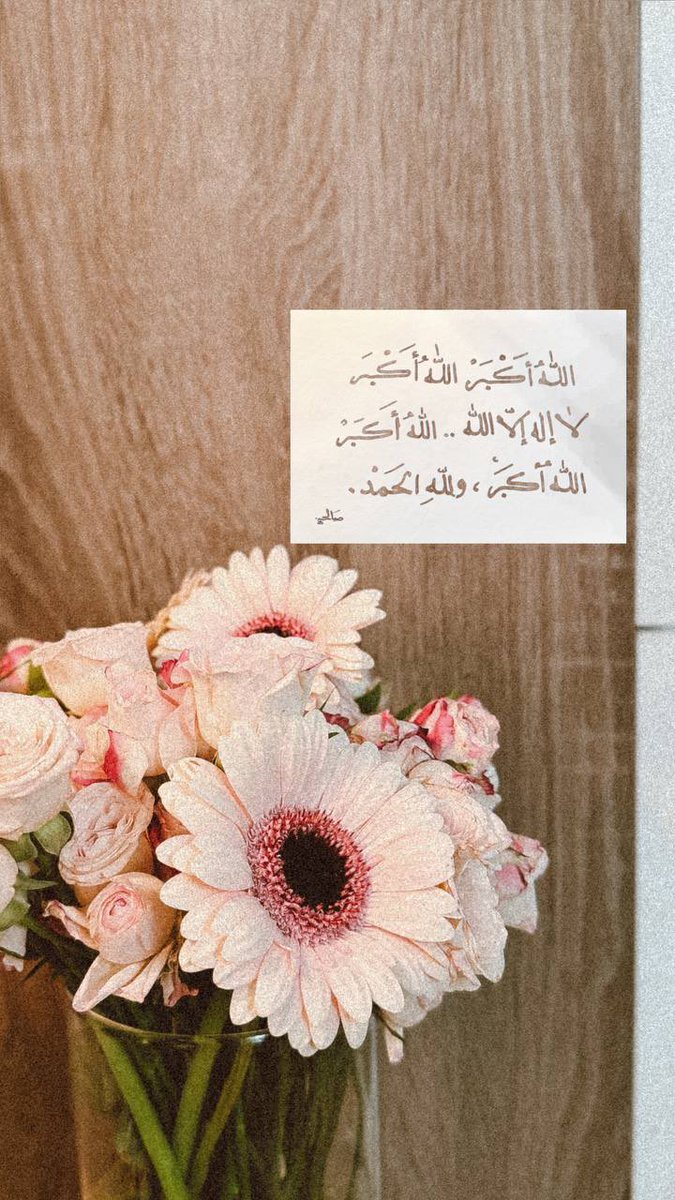 اللهُ أَكْبَرْ اللهُ أَكْبَرَ
لا إله إلّا الله .. اللهُ أَكَبَرْ
الله أكبَرَ ، وللهِ الحَمَدْ.
صالحي